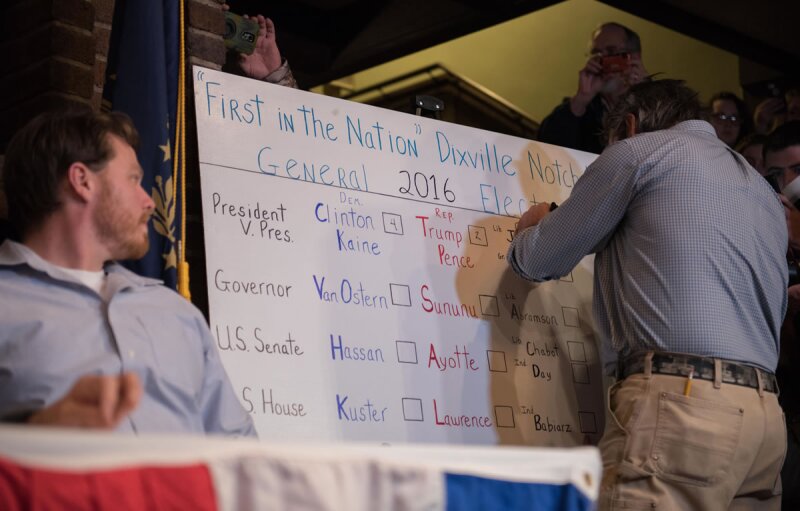 "First in the Nation" Dixville Notch
General 2016
Dem. Rep
President Clinton 4 Trump 2 Lib
V. Pres. Kaine Pence
Governor Van Ostern Sununu Lib Abramson
U.S. Senate Hassan Ayotte Lib Chabot
Ind Day
S. House Kuster Lawrence Ind Babiarz